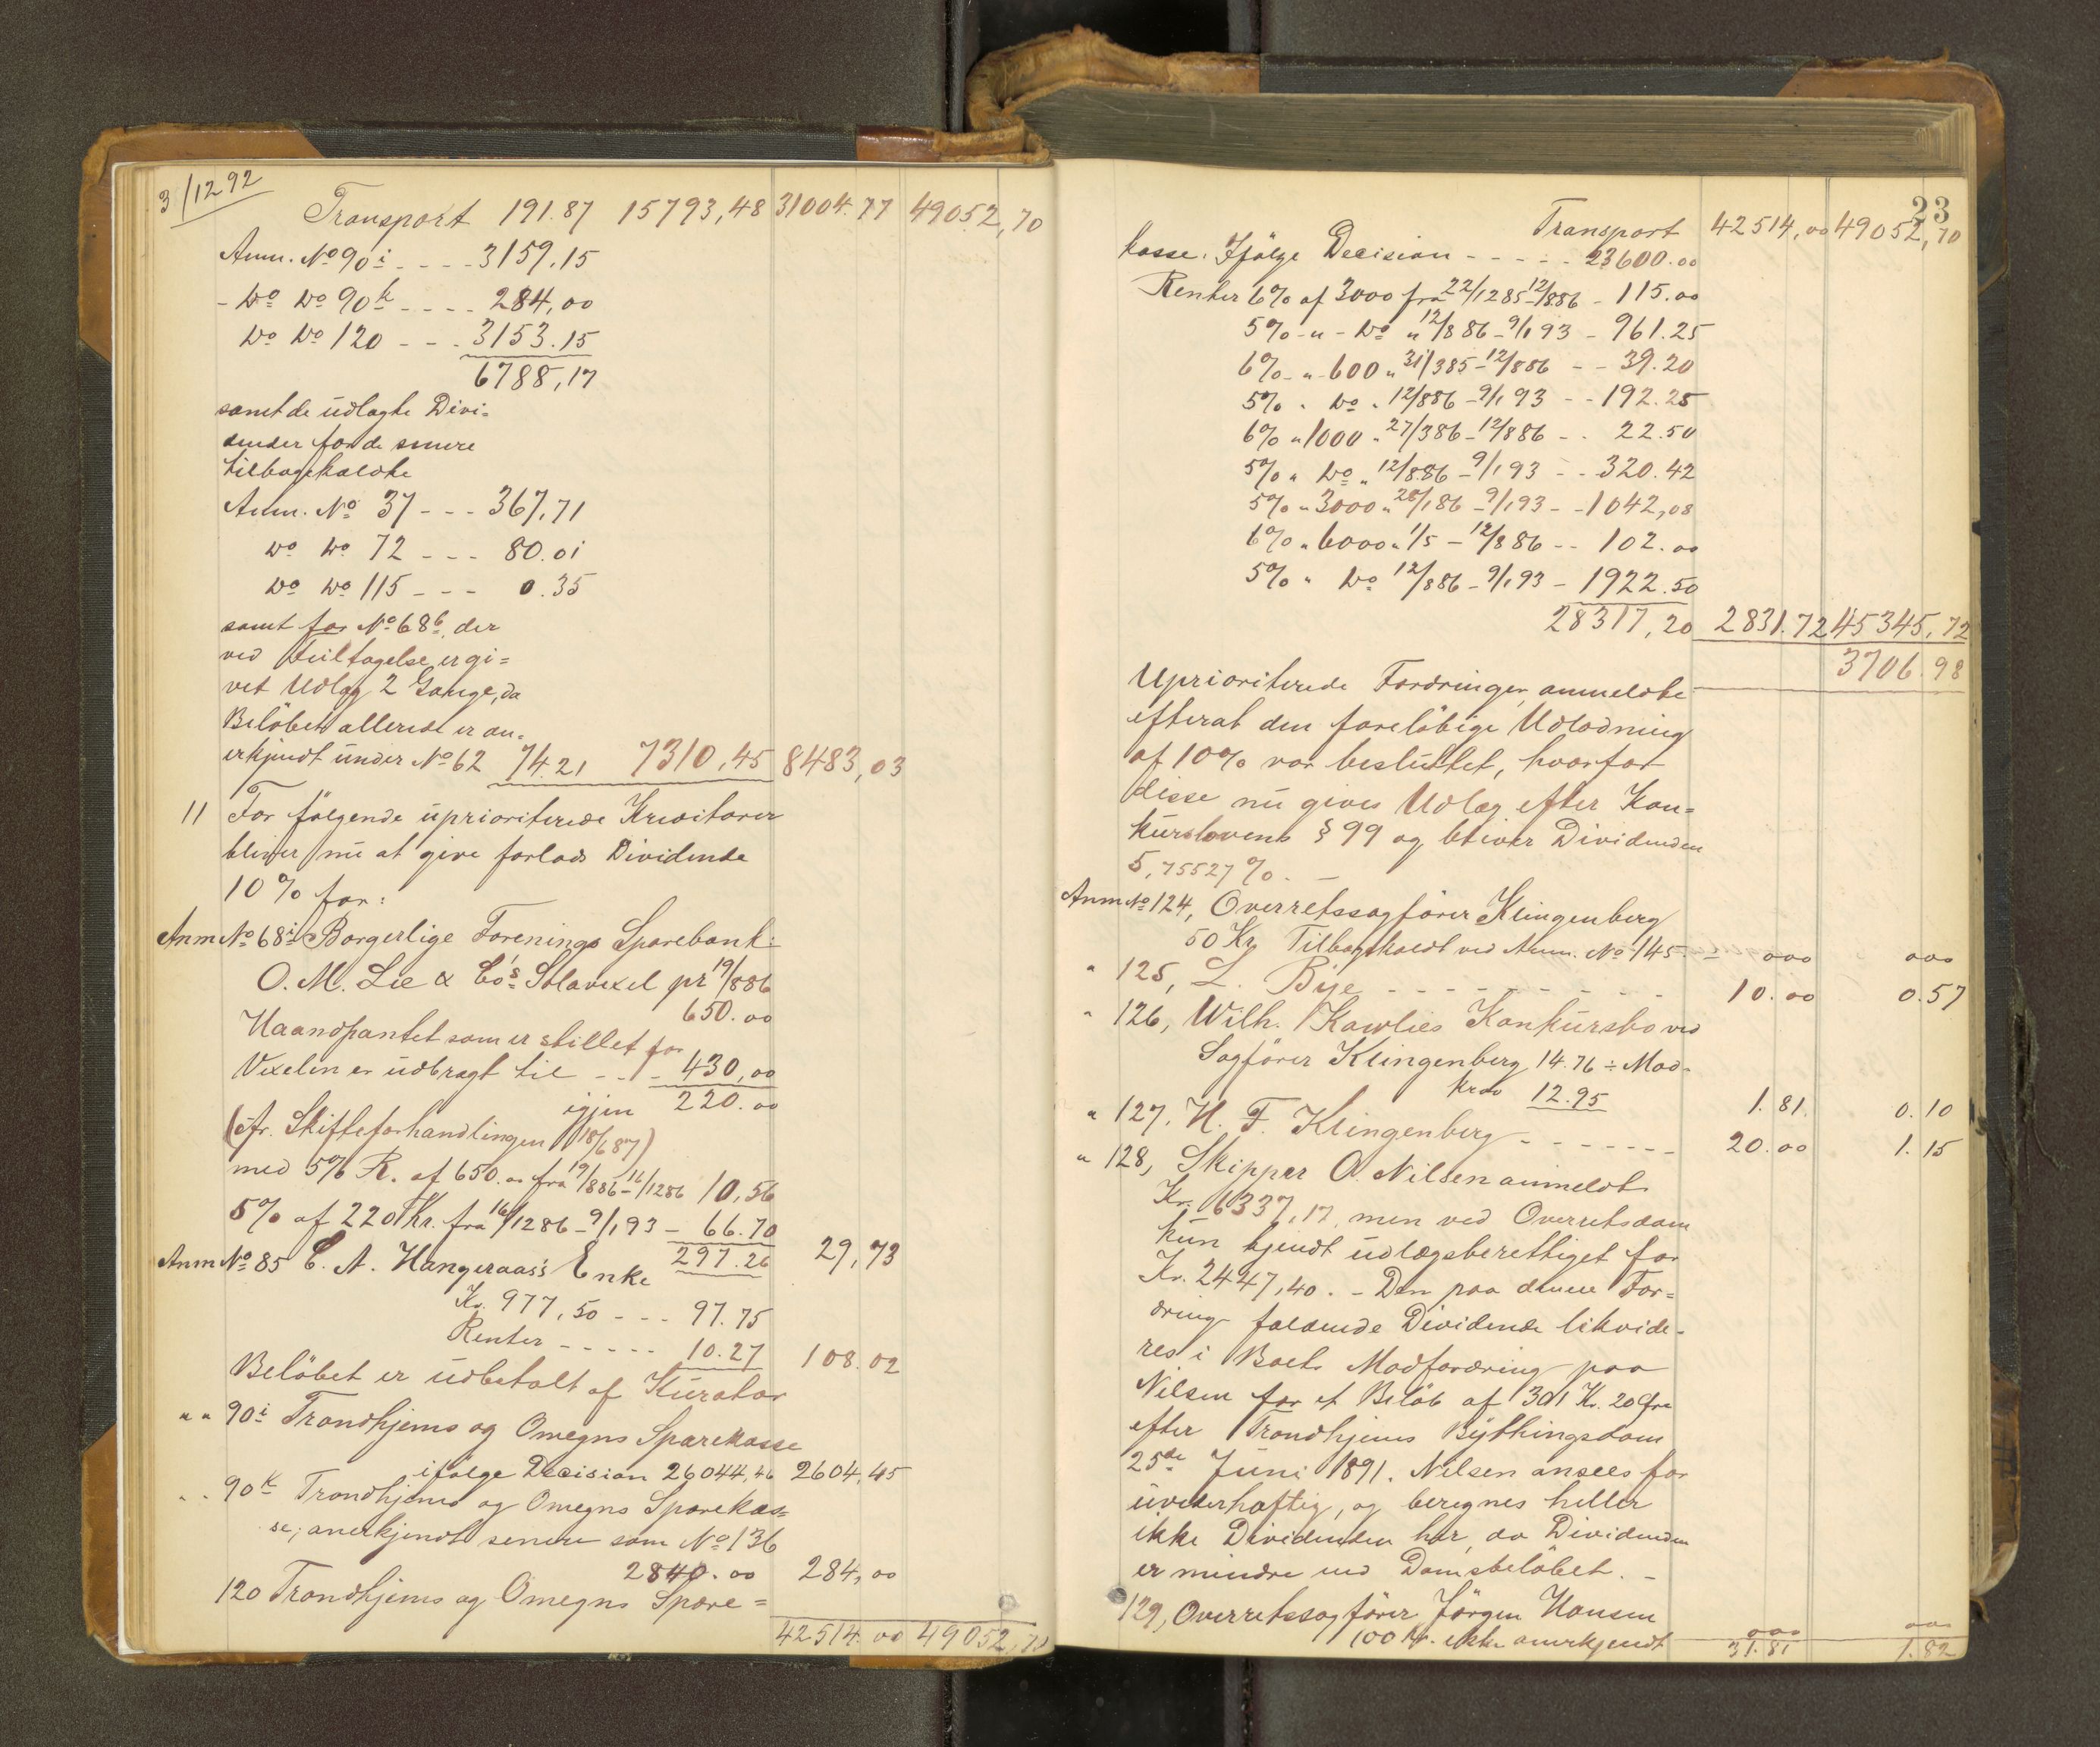 3/12 92
Transport 191.87 15793,48 31004.77 49052,70
Anm. No 90 i - - - - 3159.15
- Do Do 90 k - - - - 284,00
Do Do 120 - - - 3153.15
6788,17
samt de udlagte Divi=
dender for de senere
tilbagekaldte
Anm. No 37 - - - 367,71
Do Do 72 - - - 80.01
Do Do 115 - - - 0.35
samt for No 68 b, der
ved Feiltagelse er gi=
vet Udlæg 2 Gange, da
Beløbet allerede er an=
erkjendt under No 62 74.21 7310,45 8483,03
11 For følgende uprioriterede Kreditorer
bliver nu at give forlods Dividende
10% for:
Anm No 68 i Borgerlige Forenings Sparebank:
O. M. Lie & Co's Solavexel pr 19/886
650.00
Haandpantet som er stillet for
Vexelen er udbragt til - - - 430,00
igjen 220.00
(Fr. Skifteforhandlingen 18/6 87)
med 5% R. af 650.00 fra 19/886 - 16/1286 10,56
5% af 220 Kr. fra 16/1286 - 9/1 93 - 66.70
297.26 29,73
Anm No 85 C. A. Hangeraas's Enke
Kr. 977,50 - - - 97.75
Renter - - - - - 10.27 108.02
Beløbet er udbetalt af Kurator
" " 90 i Trondhjems og Omegns Sparekasse
ifølge Decision 26044,46 2604,45
" " 90 k Trondhjems og Omegns Sparekas=
se, anerkjendt senere som No 136
2840.00 284,00
120 Trondhjems og Omegns Spare=
42514.00 49052,70
23
Transport 42514,00 49052,70
kasse. Ifølge Decision - - - - - 23600.00
Renter 6% af 3000 fra 22/1285 - 12/886 - 115.00
5% - " - Do " 12/8 86 - 9/1 93 - 961.25
6% - " - 600 " 31/385 - 12/886 - - 39.20
5% " Do " 12/886 - 9/1 93 - - 192.25
6% " 1000 " 27/386 - 12/886 - - 22.50
5% " Do " 12/886 - 9/1 93 - - 320.42
5% " 3000 " 28/1 86 - 9/1 93 - - 1042,08
6% " 6000 " 1/5 - 12/8 86 - - 102.00
5% " Do 12/886 - 9/1 93 - 1922.50
28317,20 2831.72 45345,72
3706.98
Uprioriterede Fordringer anmeldte
efterat den foreløbige Udlodning
af 10% var besluttet, hvorfor
disse nu gives Udlæg efter Kon=
kurslovens § 99 og bliver Dividenden
5,75527%. -
Anm No 124, Overretssagfører Klingenberg
50 Kr. Tilbagekaldt ved Anm. No 145 - 000 000
" 125, L. Bye - - - - - - - - - - 10.00 0.57
" 126, Wilh. Kawlies Konkursbo ved
Sagfører Klingenberg 14.76 ÷ Mod-
krav 12.95 1.81. 0.10
" 127, H. F. Klingenberg - - - - - - 20.00 1.15
" 128, Skipper O. Nilsen anmeldt
Kr. 6337,17, men ved Overretsdom
kun kjendt udlægsberettiget for
Kr. 2447,40. - Den paa denne For=
dring faldende Dividende likvide-
res i Boets Modfordring paa
Nilsen for et Beløb af 301 Kr. 20 Øre
efter Trondhjems Bythingsdom
25de Juni 1891. Nilsen ansees for
uvederhæftig, og beregnes heller
ikke Dividenden her, da Dividenden
er mindre end Domsbeløbet. -
129, Overretssagfører Jørgen Hansen
100 Kr. ikke anerkjendt 000 000
31.81 1.82